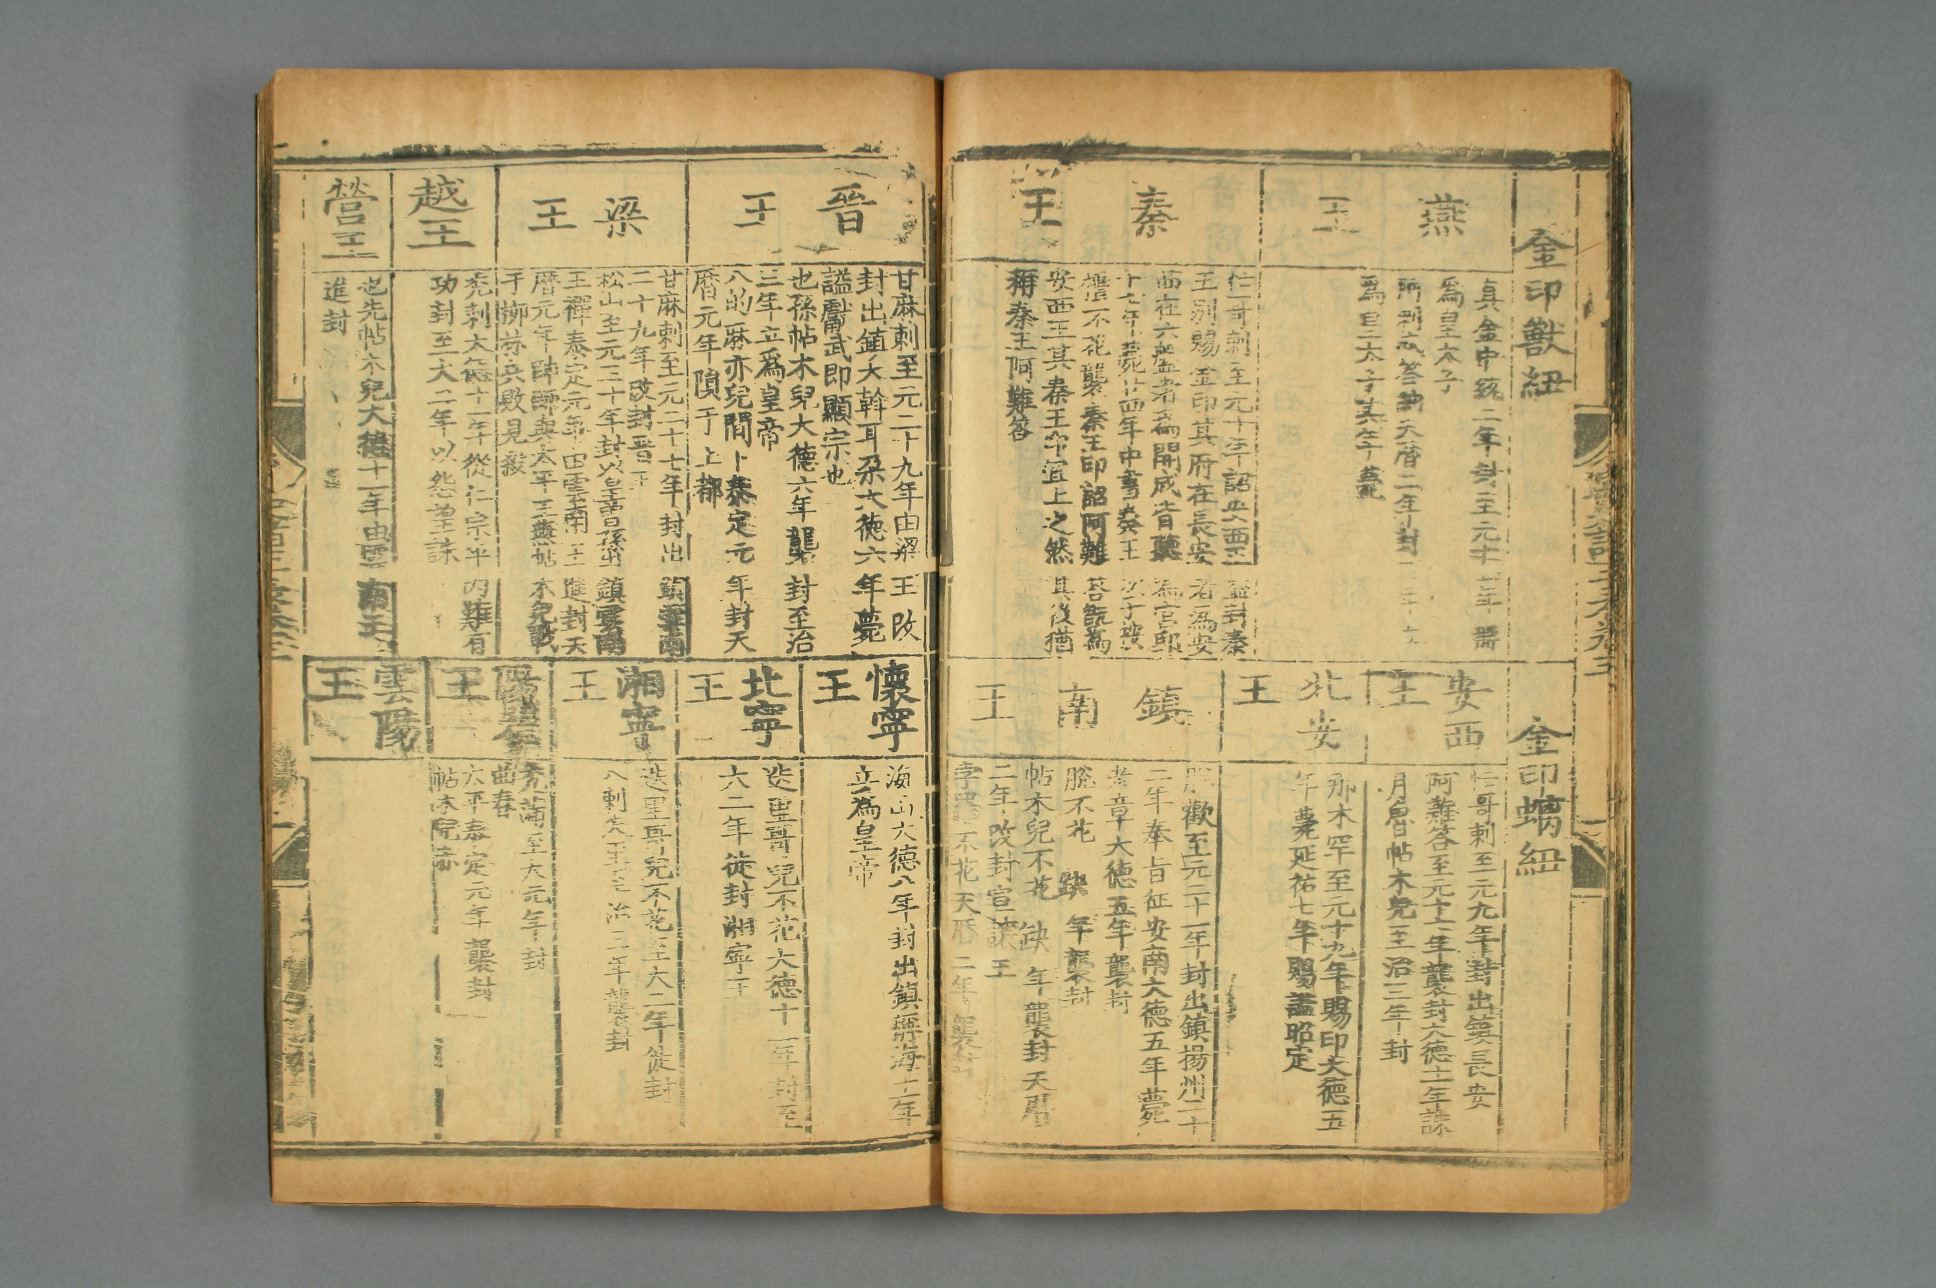 金印獸紐
燕王
真金中統二年封至元十年冊
爲皇太子
阿剌忒答納天曆二年封
爲皇太子其年薨
秦王
忙哥剌至元十年詔安西王益封秦
王別賜金印其府在長安者爲安
西在六盤者爲開成皆聽爲宮邸
十七年薨廿四年中書奏王次子按
攤不花襲秦王印詔阿難答既爲
安西王其秦王印宜上之然其後猶
稱秦王阿難答
晉王
甘麻剌至元二十九年由梁王改
封出鎮大斡耳朵大德六年薨
謚獻武即顯宗也
也孫帖木兒大德六年襲封至治
三年立爲皇帝
八的麻亦兒間卜泰定元年封天
曆元年隕于上都
梁王
甘麻剌至元二十七年封出鎮雲南
二十九年改封晉王
松山至元三十年封以皇曾孫出鎮雲南
王禪泰定元年由雲南王進封天
曆元年帥師與太平王燕帖木兒戰
于柳林兵敗見殺
越王
禿剌大德十一年從仁宗平內難有
功封至大二年以怨望誅
營王
也先帖木兒大德十一年由雲南王
進封
金印螭紐
安西王
忙哥剌至元九年封出鎮長安
阿難答至元十一年襲封大德十一年誅
月魯帖木兒至治三年封
北安王
那木罕至元十九年賜印大德五
年薨延祐七年賜謚昭定
鎮南王
脫歡至元二十一年封出鎮揚州二十
二年奉旨征安南大德五年薨
老章大德五年襲封
脫不花 缺 年襲封
帖木兒不花 缺 年襲封天曆
二年改封宣讓王
孛羅不花天曆二年襲封
懷寧王
海山大德八年封出鎮稱海十一年
立爲皇帝
北寧王
迭里哥兒不花大德十一年封至
大二年徙封湘寧王
湘寧王
迭里哥兒不花至大二年徙封
八剌失里至治三年襲封
陽翟王
禿滿至大元年封
曲春
太平泰定元年襲封
帖木兒赤
雲陽王